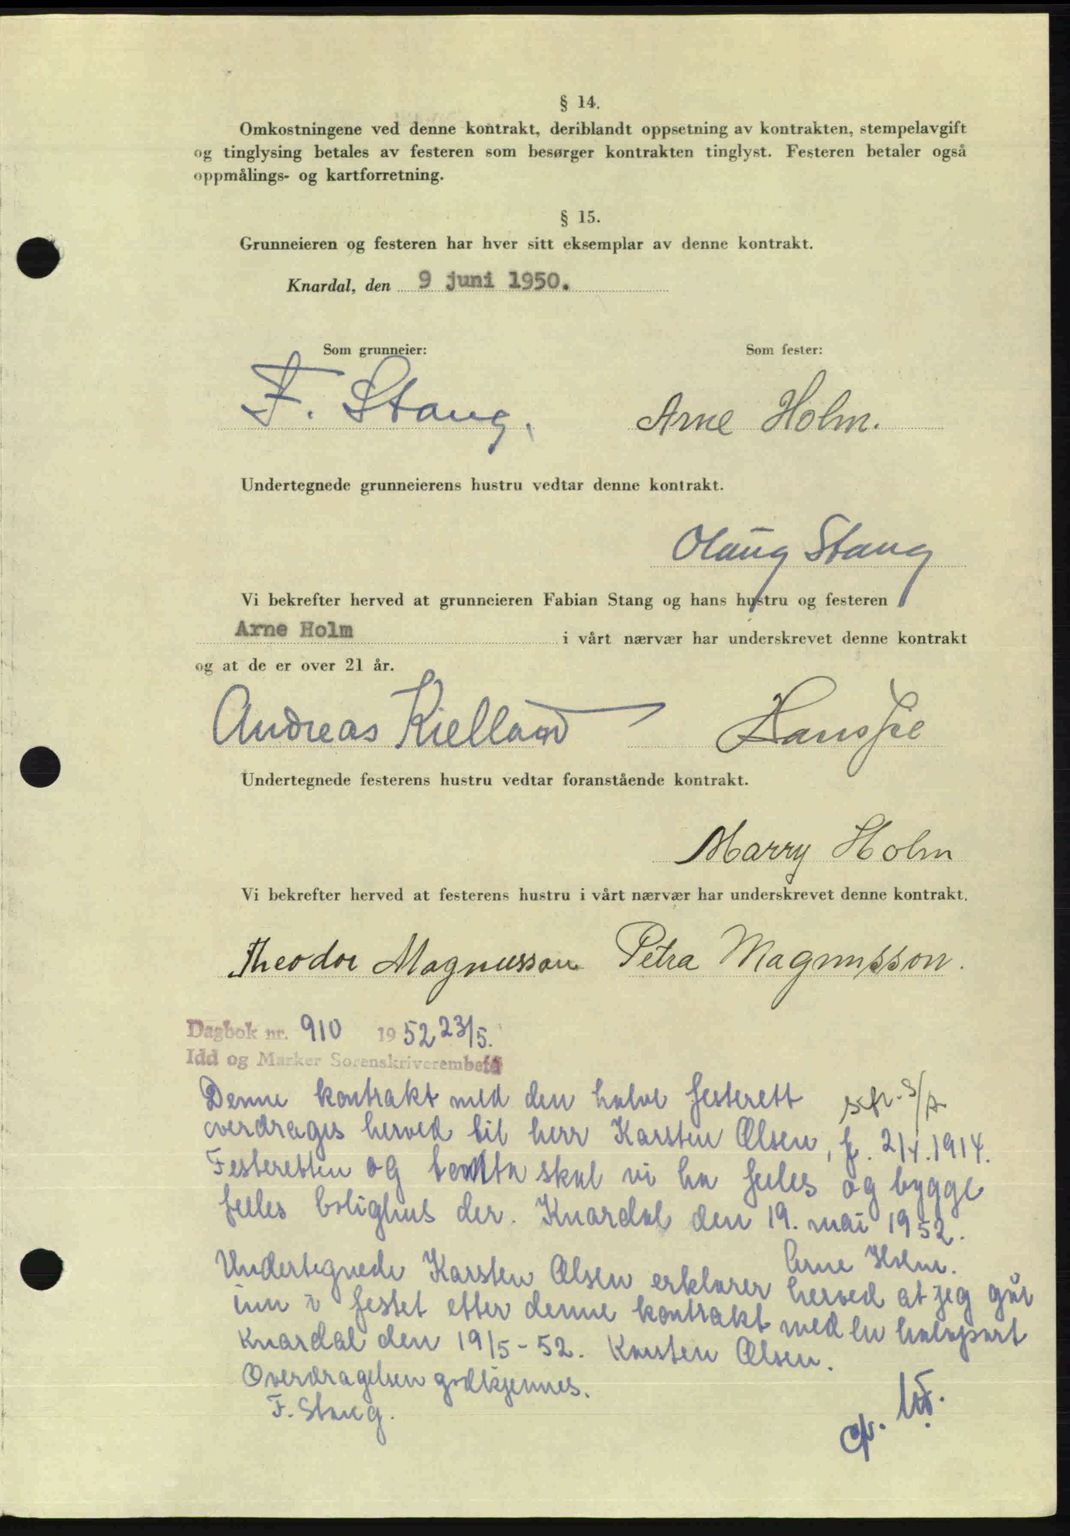 § 14.
Omkostningene ved denne kontrakt, deriblandt oppsetning av kontrakten, stempelavgift
og tinglysing betales av festeren som besørger kontrakten tinglyst. Festeren betaler også
oppmålings- og kartforretning.
§ 15.
Grunneieren og festeren har hver sitt eksemplar av denne kontrakt.
Knardal, den 9 juni 1950.
Som grunneier: Som fester:
F. Stang. Arne Holm.
Undertegnede grunneierens hustru vedtar denne kontrakt.
Olaug Stang
Vi bekrefter herved at grunneieren Fabian Stang og hans hustru og festeren
Arne Holm i vårt nærvær har underskrevet denne kontrakt
og at de er over 21 år.
Andreas Kielland Hans
Undertegnede festerens hustru vedtar foranstående kontrakt.
Marry Holm
Vi bekrefter herved at festerens hustru i vårt nærvær har underskrevet denne kontrakt.
Theodor Magnusson Petra Magnusson.
Dagbok nr. 910 1952 23/5.
Idd og Marker Sorenskriverembete
Denne kontrakt med den halve festerett
overdrages herved til herr Karsten Olsen, f. 2/4.1914.
Festeretten og tomta skal vi ha felles og bygge
felles bolighus der. Knardal den 19. mai 1952.
Arne Holm.
Undertegnede Karsten Olsen erklærer herved at jeg går
inn i festet etter denne kontrakt med en halvpart
Knardal den 19/5-52. Karsten Olsen.
Overdragelsen godkjennes.
F. Stang.